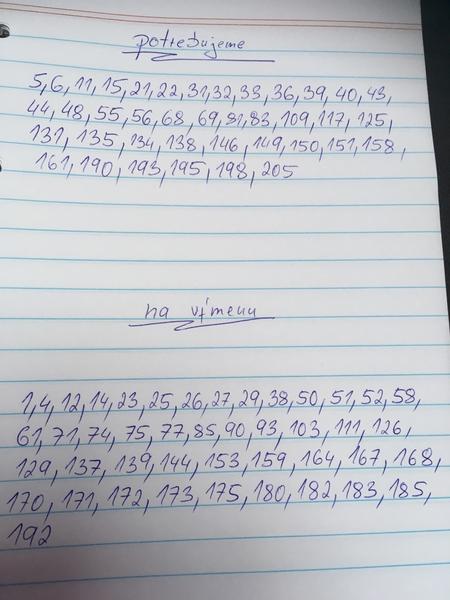 potrebujeme
5, 6, 11, 15, 21, 22, 31, 32, 33, 36, 39, 40, 43,
44, 48, 55, 56, 68, 69, 81, 83, 109, 117, 125,
131, 135, 134, 138, 146, 149, 150, 151, 158,
161, 190, 193, 195, 198, 205
na výmenu
1, 4, 12, 14, 23, 25, 26, 27, 29, 38, 50, 51, 52, 58,
61, 71, 74, 75, 77, 85, 90, 93, 103, 111, 126,
129, 137, 139, 144, 153, 159, 164, 167, 168,
170, 171, 172, 173, 175, 180, 182, 183, 185,
192